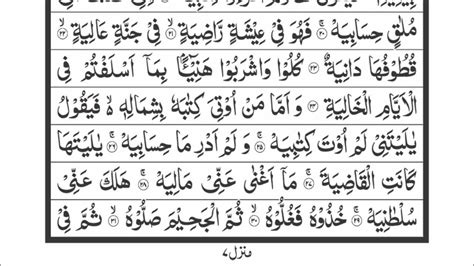 مُلٰقٍ حِسَابِيَهْ ۚ ﴿۲۰﴾ فَهُوَ فِىْ عِيْشَةٍ رَّاضِيَةٍ ۙ ﴿۲۱﴾ فِىْ جَنَّةٍ عَالِيَةٍ ۙ ﴿۲۲﴾
قُطُوْفُهَا دَانِيَةٌ ﴿۲۳﴾ كُلُوْا وَاشْرَبُوْا هَنِيْٓــًٔۢا بِمَآ اَسْلَفْتُمْ فِى
الْاَيَّامِ الْخَالِيَةِ ﴿۲۴﴾ وَ اَمَّا مَنْ اُوْتِىَ كِتٰبَهٗ بِشِمَالِهٖ ۙ فَيَقُوْلُ
يٰلَيْتَنِىْ لَمْ اُوْتَ كِتٰبِيَهْ ۚ ﴿۲۵﴾ وَ لَمْ اَدْرِ مَا حِسَابِيَهْ ۚ ﴿۲۶﴾ يٰلَيْتَهَا
كَانَتِ الْقَاضِيَةَ ۚ ﴿۲۷﴾ مَآ اَغْنٰى عَنِّىْ مَالِيَهْ ۚ ﴿۲۸﴾ هَلَكَ عَنِّىْ
سُلْطٰنِيَهْ ۚ ﴿۲۹﴾ خُذُوْهُ فَغُلُّوْهُ ۙ ﴿۳۰﴾ ثُمَّ الْجَحِيْمَ صَلُّوْهُ ۙ ﴿۳۱﴾ ثُمَّ فِىْ
منزل ۷